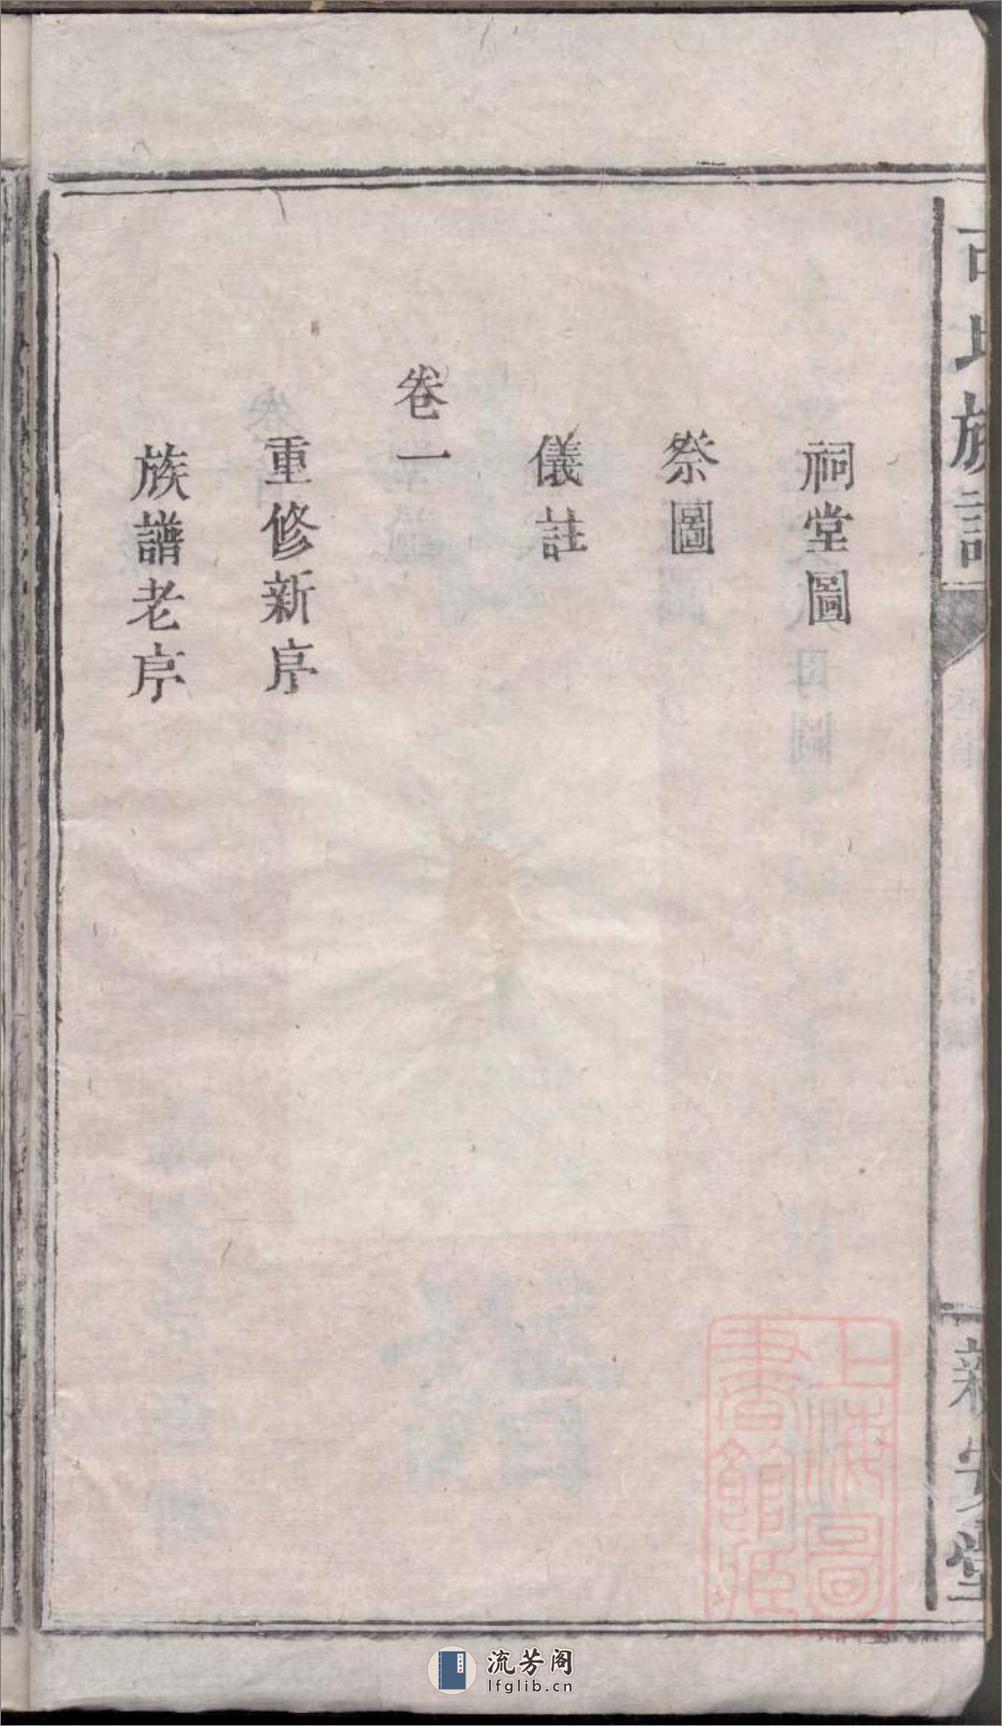 祠堂圖
祭圖
儀註
卷一
重修新序
族譜老序
氏族譜
新安堂
上海圖
書館藏
流芳阁
lfglib.cn